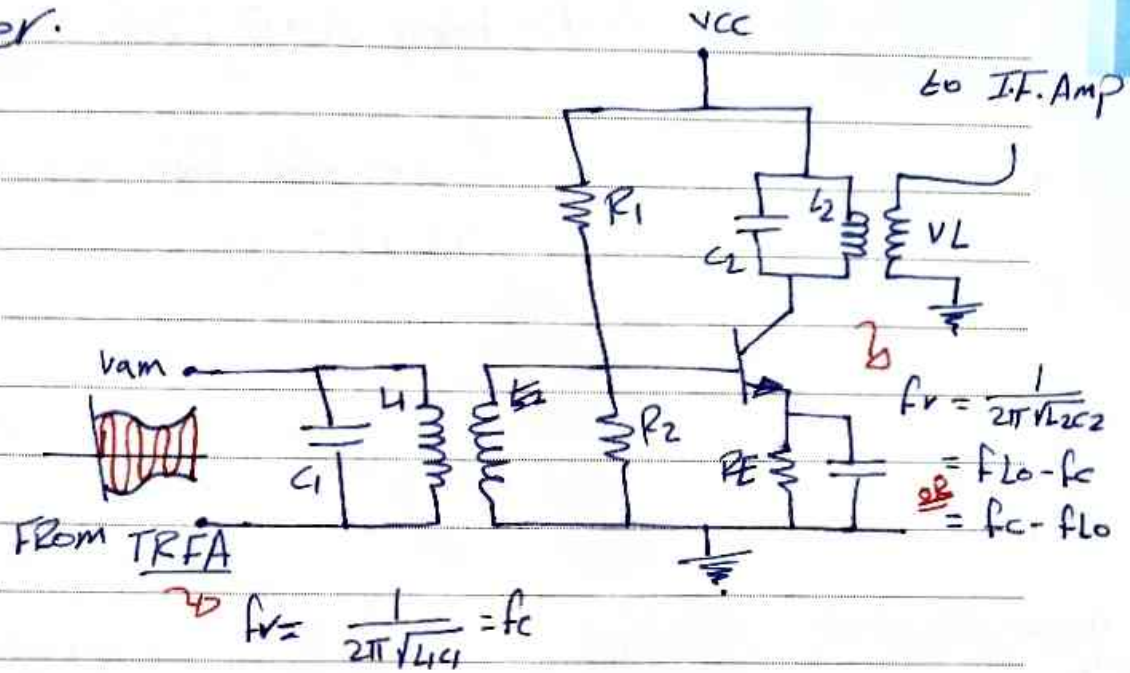 er.
VCC
to I.F. Amp
R1
C2
L2
VL
Vam
C1
L1
R2
RE
fr = 1/2π√L2C2
= fLo - fc
OR
= fc - fLo
FROM TRFA
fr = 1/2π√L1C1 = fc